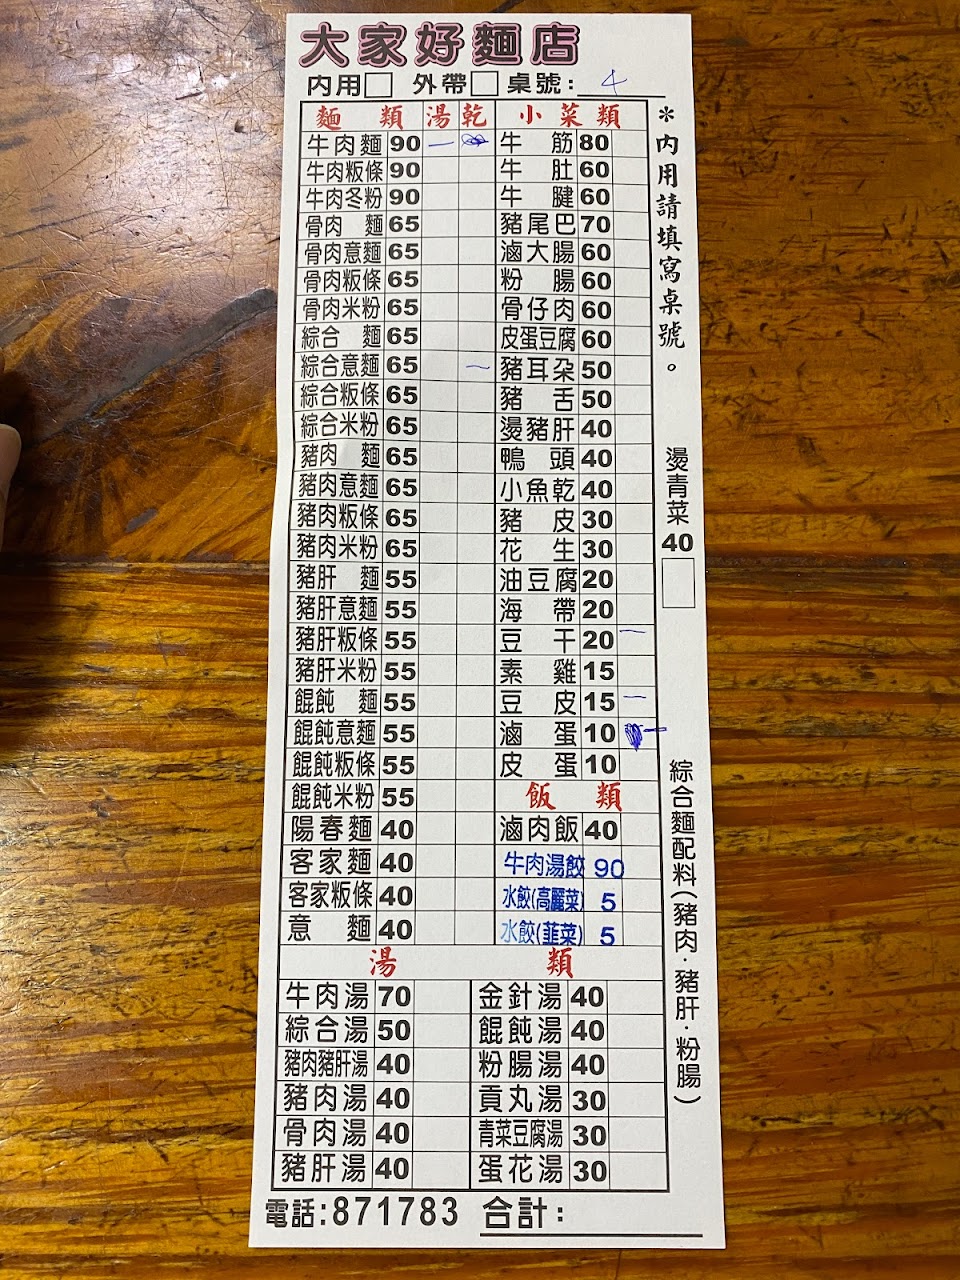 大家好麵店
內用□ 外帶□ 桌號: 4
麵類 湯 乾 小菜類
牛肉麵 90 一 牛筋 80
牛肉粄條 90 牛肚 60
牛肉冬粉 90 牛腱 60
骨肉麵 65 豬尾巴 70
骨肉意麵 65 滷大腸 60
骨肉粄條 65 粉腸 60
骨肉米粉 65 骨仔肉 60
綜合麵 65 皮蛋豆腐 60
綜合意麵 65 一 豬耳朵 50
綜合粄條 65 豬舌 50
綜合米粉 65 燙豬肝 40
豬肉麵 65 鴨頭 40
豬肉意麵 65 小魚乾 40
豬肉粄條 65 豬皮 30
豬肉米粉 65 花生 30
豬肝麵 55 油豆腐 20
豬肝意麵 55 海帶 20
豬肝粄條 55 豆干 20 一
豬肝米粉 55 素雞 15
餛飩麵 55 豆皮 15 一
餛飩意麵 55 滷蛋 10 一
餛飩粄條 55 皮蛋 10
餛飩米粉 55 飯類
陽春麵 40 滷肉飯 40
客家麵 40 牛肉湯餃 90
客家粄條 40 水餃(高麗菜) 5
意麵 40 水餃(韮菜) 5
湯類
牛肉湯 70 金針湯 40
綜合湯 50 餛飩湯 40
豬肉豬肝湯 40 粉腸湯 40
豬肉湯 40 貢丸湯 30
骨肉湯 40 青菜豆腐湯 30
豬肝湯 40 蛋花湯 30
電話:871783 合計:
＊內用請填寫桌號。
燙青菜 40 □
綜合麵配料(豬肉·豬肝·粉腸)